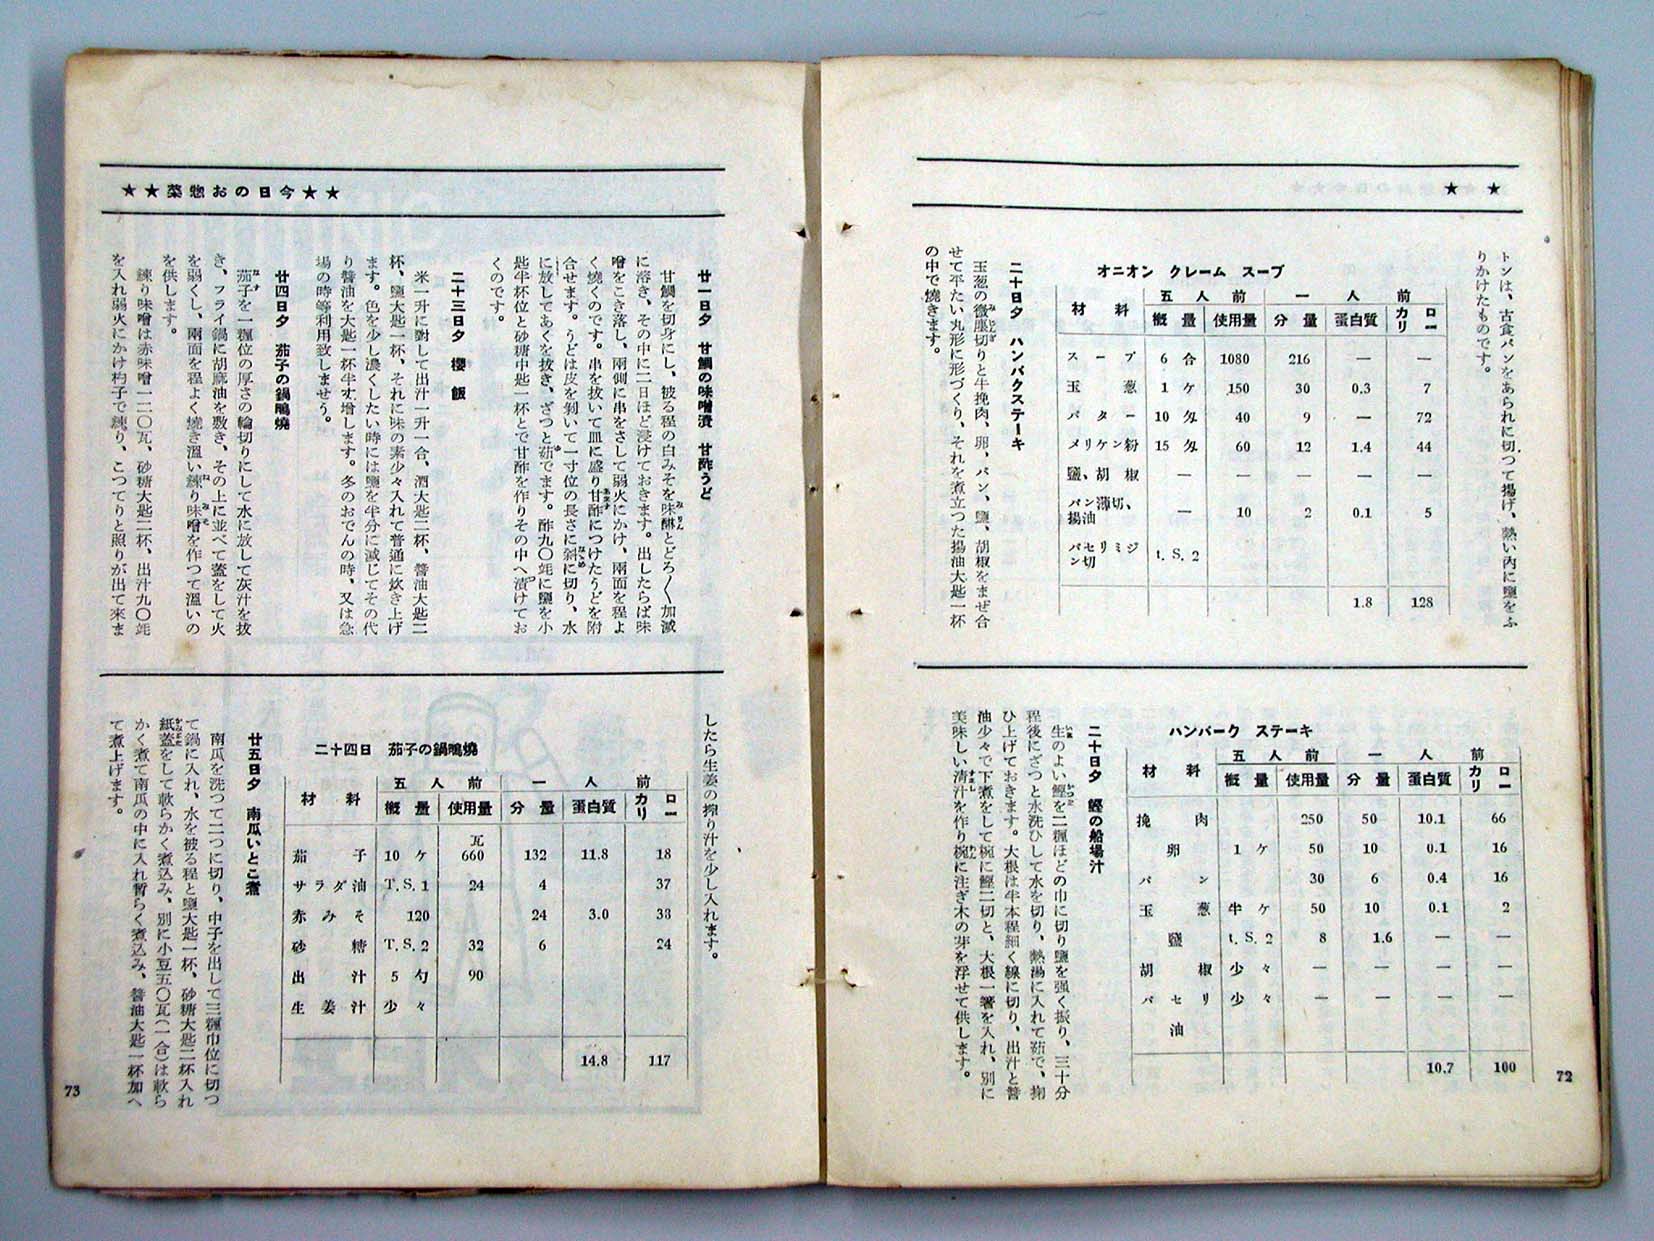 ★ ★
トンは、古食パンをあられに切つて揚げ、熱い内に鹽をふ
りかけたものです。
オニオン クレーム スープ
材料 五人前 一人前
概量 使用量 分量 蛋白質 カロリー
スープ 6合 1080 216 — —
玉葱 1ケ 150 30 0.3 7
バター 10匁 40 9 — 72
メリケン粉 15匁 60 12 1.4 44
鹽、胡椒 — — — — —
パン薄切、揚油 — 10 2 0.1 5
パセリミジン切 t.S.2
1.8 128
二十日夕 ハンバクステーキ
玉葱の微塵切りと牛挽肉、卵、パン、鹽、胡椒をまぜ合
せて平たい丸形に形づくり、それを煮立つた揚油大匙一杯
の中で燒きます。
ハンバーク ステーキ
材料 五人前 一人前
概量 使用量 分量 蛋白質 カロリー
挽肉 250 50 10.1 66
卵 1ケ 50 10 0.1 16
パン 30 6 0.4 16
玉葱 半ケ 50 10 0.1 2
鹽 t.S.2 8 1.6 — —
胡椒 少々 — — — —
パセリ 少々 — — — —
油
10.7 100
二十日夕 鰹の船場汁
生のよい鰹を二糎ほどの巾に切り鹽を强く振り、三十分
程後にざつと水洗ひして水を切り、熱湯に入れて茹で、掬
ひ上げておきます。大根は半本程細く線に切り、出汁と醤
油少々で下煮をして椀に鰹二切と、大根一箸を入れ、別に
美味しい清汁を作り椀に注ぎ木の芽を浮せて供します。
72
★★今日のお惣菜★★
廿一日夕 甘鯛の味噌漬 甘酢うど
甘鯛を切身にし、被る程の白みそを味醂とどろ〱加減
に溶き、その中に二日ほど浸けておきます。出したらば味
噌をこき落し、兩側に串をさして弱火にかけ、兩面を程よ
く燒くのです。串を抜いて皿に盛り甘酢につけたうどを附
合せます。うどは皮を剝いて一寸位の長さに斜に切り、水
に放してあくを抜き、ざつと茹でます。酢九〇竓に鹽を小
匙半杯位と砂糖中匙一杯とで甘酢を作りその中へ漬けてお
くのです。
二十三日夕 櫻飯
米一升に對して出汁一升一合、酒大匙二杯、醤油大匙二
杯、鹽大匙一杯、それに味の素少々入れて普通に炊き上げ
ます。色を少し濃くしたい時には鹽を半分に減じてその代
り醤油を大匙一杯半丈增します。冬のおでんの時、又は急
場の時等利用致しませう。
廿四日夕 茄子の鍋鴫燒
茄子を一糎位の厚さの輪切りにして水に放して灰汁を抜
き、フライ鍋に胡麻油を敷き、その上に並べて蓋をして火
を弱くし、兩面を程よく燒き溫い練り味噌を作つて溫いの
を供します。
練り味噌は赤味噌一二〇瓦、砂糖大匙二杯、出汁九〇竓
を入れ弱火にかけ杓子で練り、こつてりと照りが出て來ま
したら生姜の搾り汁を少し入れます。
二十四日 茄子の鍋鴫燒
材料 五人前 一人前
概量 使用量 分量 蛋白質 カロリー
茄子 10ケ 瓦660 132 11.8 18
サラダ油 T.S.1 24 4 37
赤みそ 120 24 3.0 38
砂糖 T.S.2 32 6 24
出汁 5勺 90
生姜汁 少々
14.8 117
廿五日夕 南瓜いとこ煮
南瓜を洗つて二つに切り、中子を出して三糎巾位に切つ
て鍋に入れ、水を被る程と鹽大匙一杯、砂糖大匙二杯入れ
紙蓋をして軟らかく煮込み、別に小豆五〇瓦(一合)は軟ら
かく煮て南瓜の中に入れ暫らく煮込み、醤油大匙一杯加へ
て煮上げます。
73